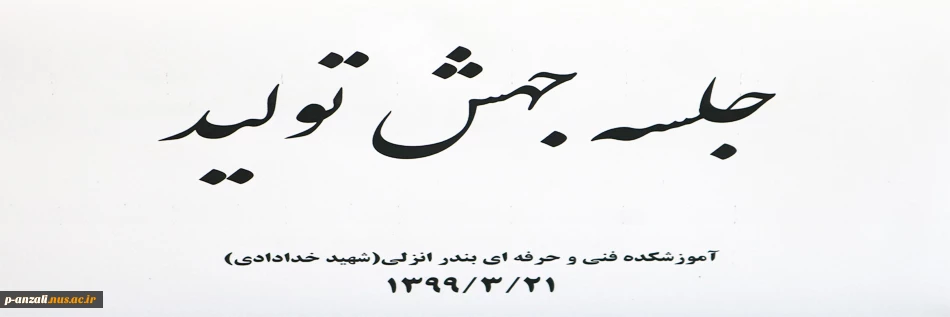 جلسه جهش تولید
آموزشکده فنی و حرفه ای بندر انزلی(شهید خدادادی)
۱۳۹۹/۳/۲۱
p-anzali.nus.ac.ir